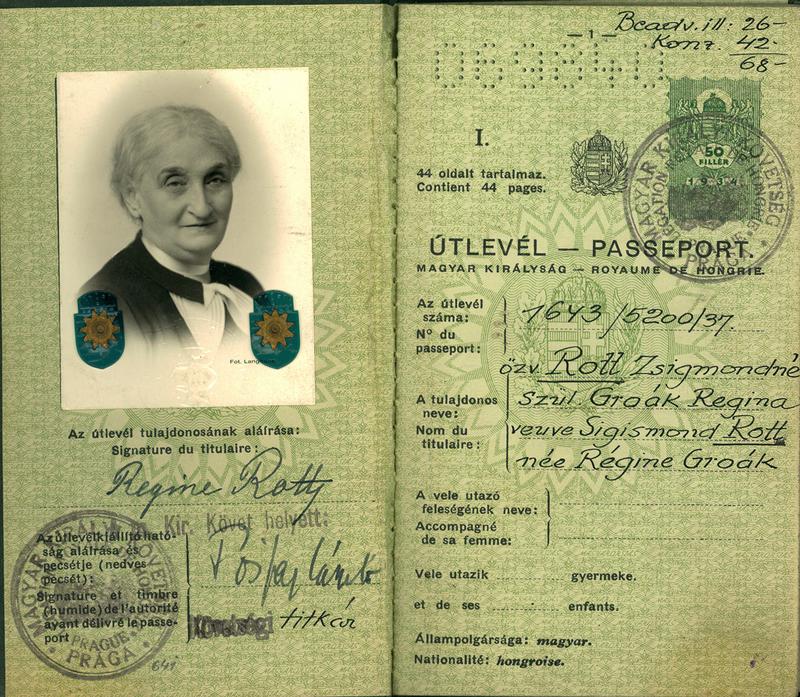 Fot. Lang
Az útlevél tulajdonosának aláírása:
Signature du titulaire:
Regine Rott
Kir. Követ helyett:
Az útlevélkiállító ható-
ság aláírása és
pecsétje (nedves
pecsét):
Signature et timbre
(humide) de l'autorité
ayant délivré le passe-
port
titkár
MAGYAR KIRÁLYI KÖVETSÉG
PRAGUE
PRÁGA
641
- 1 -
Bcadv. ill: 26-
Konz. 42.-
68-
069840
I.
44 oldalt tartalmaz.
Contient 44 pages.
50
FILLÉR
1934
MAGYAR KIRÁLYI KÖVETSÉG
PRÁGA
ÚTLEVÉL — PASSEPORT.
MAGYAR KIRÁLYSÁG — ROYAUME DE HONGRIE.
Az útlevél
száma:
N° du
passeport:
1643/5200/37.
A tulajdonos
neve:
Nom du
titulaire:
özv. Rott Zsigmondné
szül. Groák Regina
veuve Sigismond Rott
née Régine Groák
A vele utazó
feleségének neve:
Accompagné
de sa femme:
Vele utazik gyermeke.
et de ses enfants.
Állampolgársága: magyar.
Nationalité: hongroise.